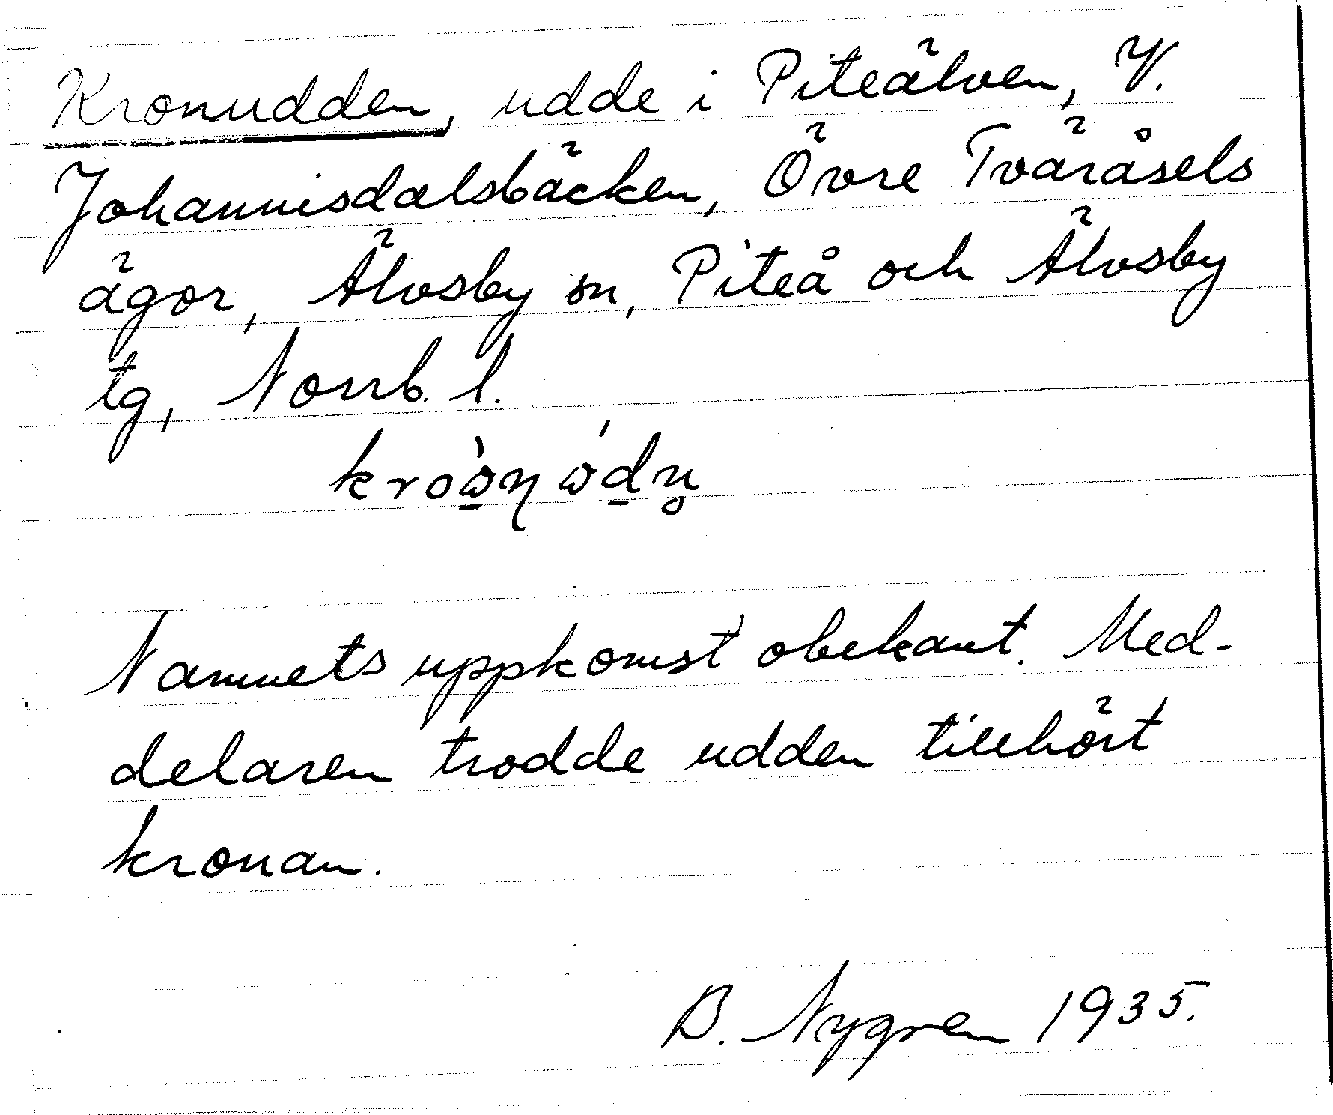 Kronudden, udde i Piteälven, V.
Johannisdalsbäcken, Övre Tväråsels
ägor, Älvsby sn, Piteå och Älvsby
tg, Norrb. l.
Namnets uppkomst obekant. Med-
delaren trodde udden tillhört
kronan.
B. Nygren 1935.